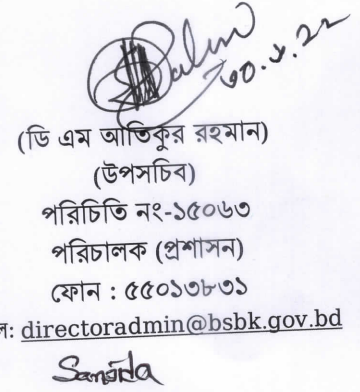 ৩০.৫.২২
(ডি এম আতিকুর রহমান)
(উপসচিব)
পরিচিতি নং-১৫০৬৩
পরিচালক (প্রশাসন)
ফোন : ৫৫০১৩৮৩১
ল: directoradmin@bsbk.gov.bd